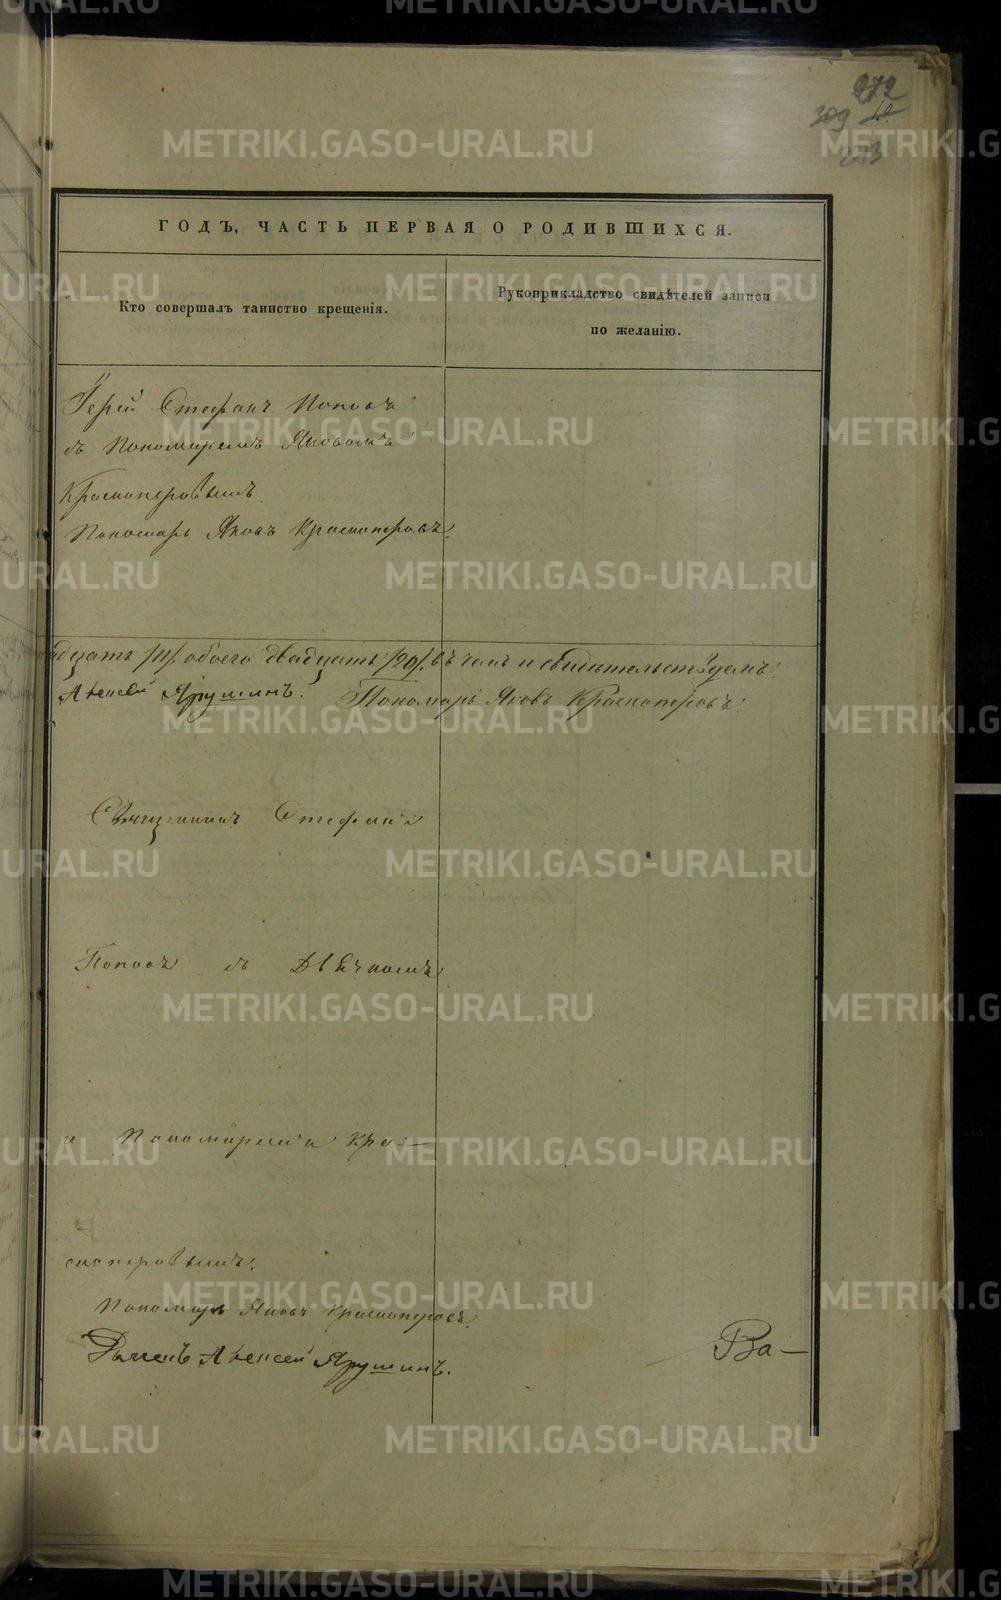 272
309
273
ГОДЪ, ЧАСТЬ ПЕРВАЯ О РОДИВШИХСЯ.
Кто совершалъ таинство крещенія.
Рукоприкладство свидѣтелей записи
по желанію.
Іерей Стефанъ Поповъ
съ Пономаремъ Яковомъ
Красноперовымъ
Пономарь Яковъ Красноперовъ.
адцать /11/ обоего двадцать /20/. въ чемъ и свидѣтельствуемъ:
Алексей Ярушинъ. Пономарь Яковъ Красноперовъ.
Священникъ Стефанъ
Поповъ съ Дьячкомъ
и Пономаремъ Кра-
сноперовымъ.
Пономарь Яковъ Красноперовъ.
Дьячекъ Алексей Ярушинъ.
Ва-
METRIKI.GASO-URAL.RU